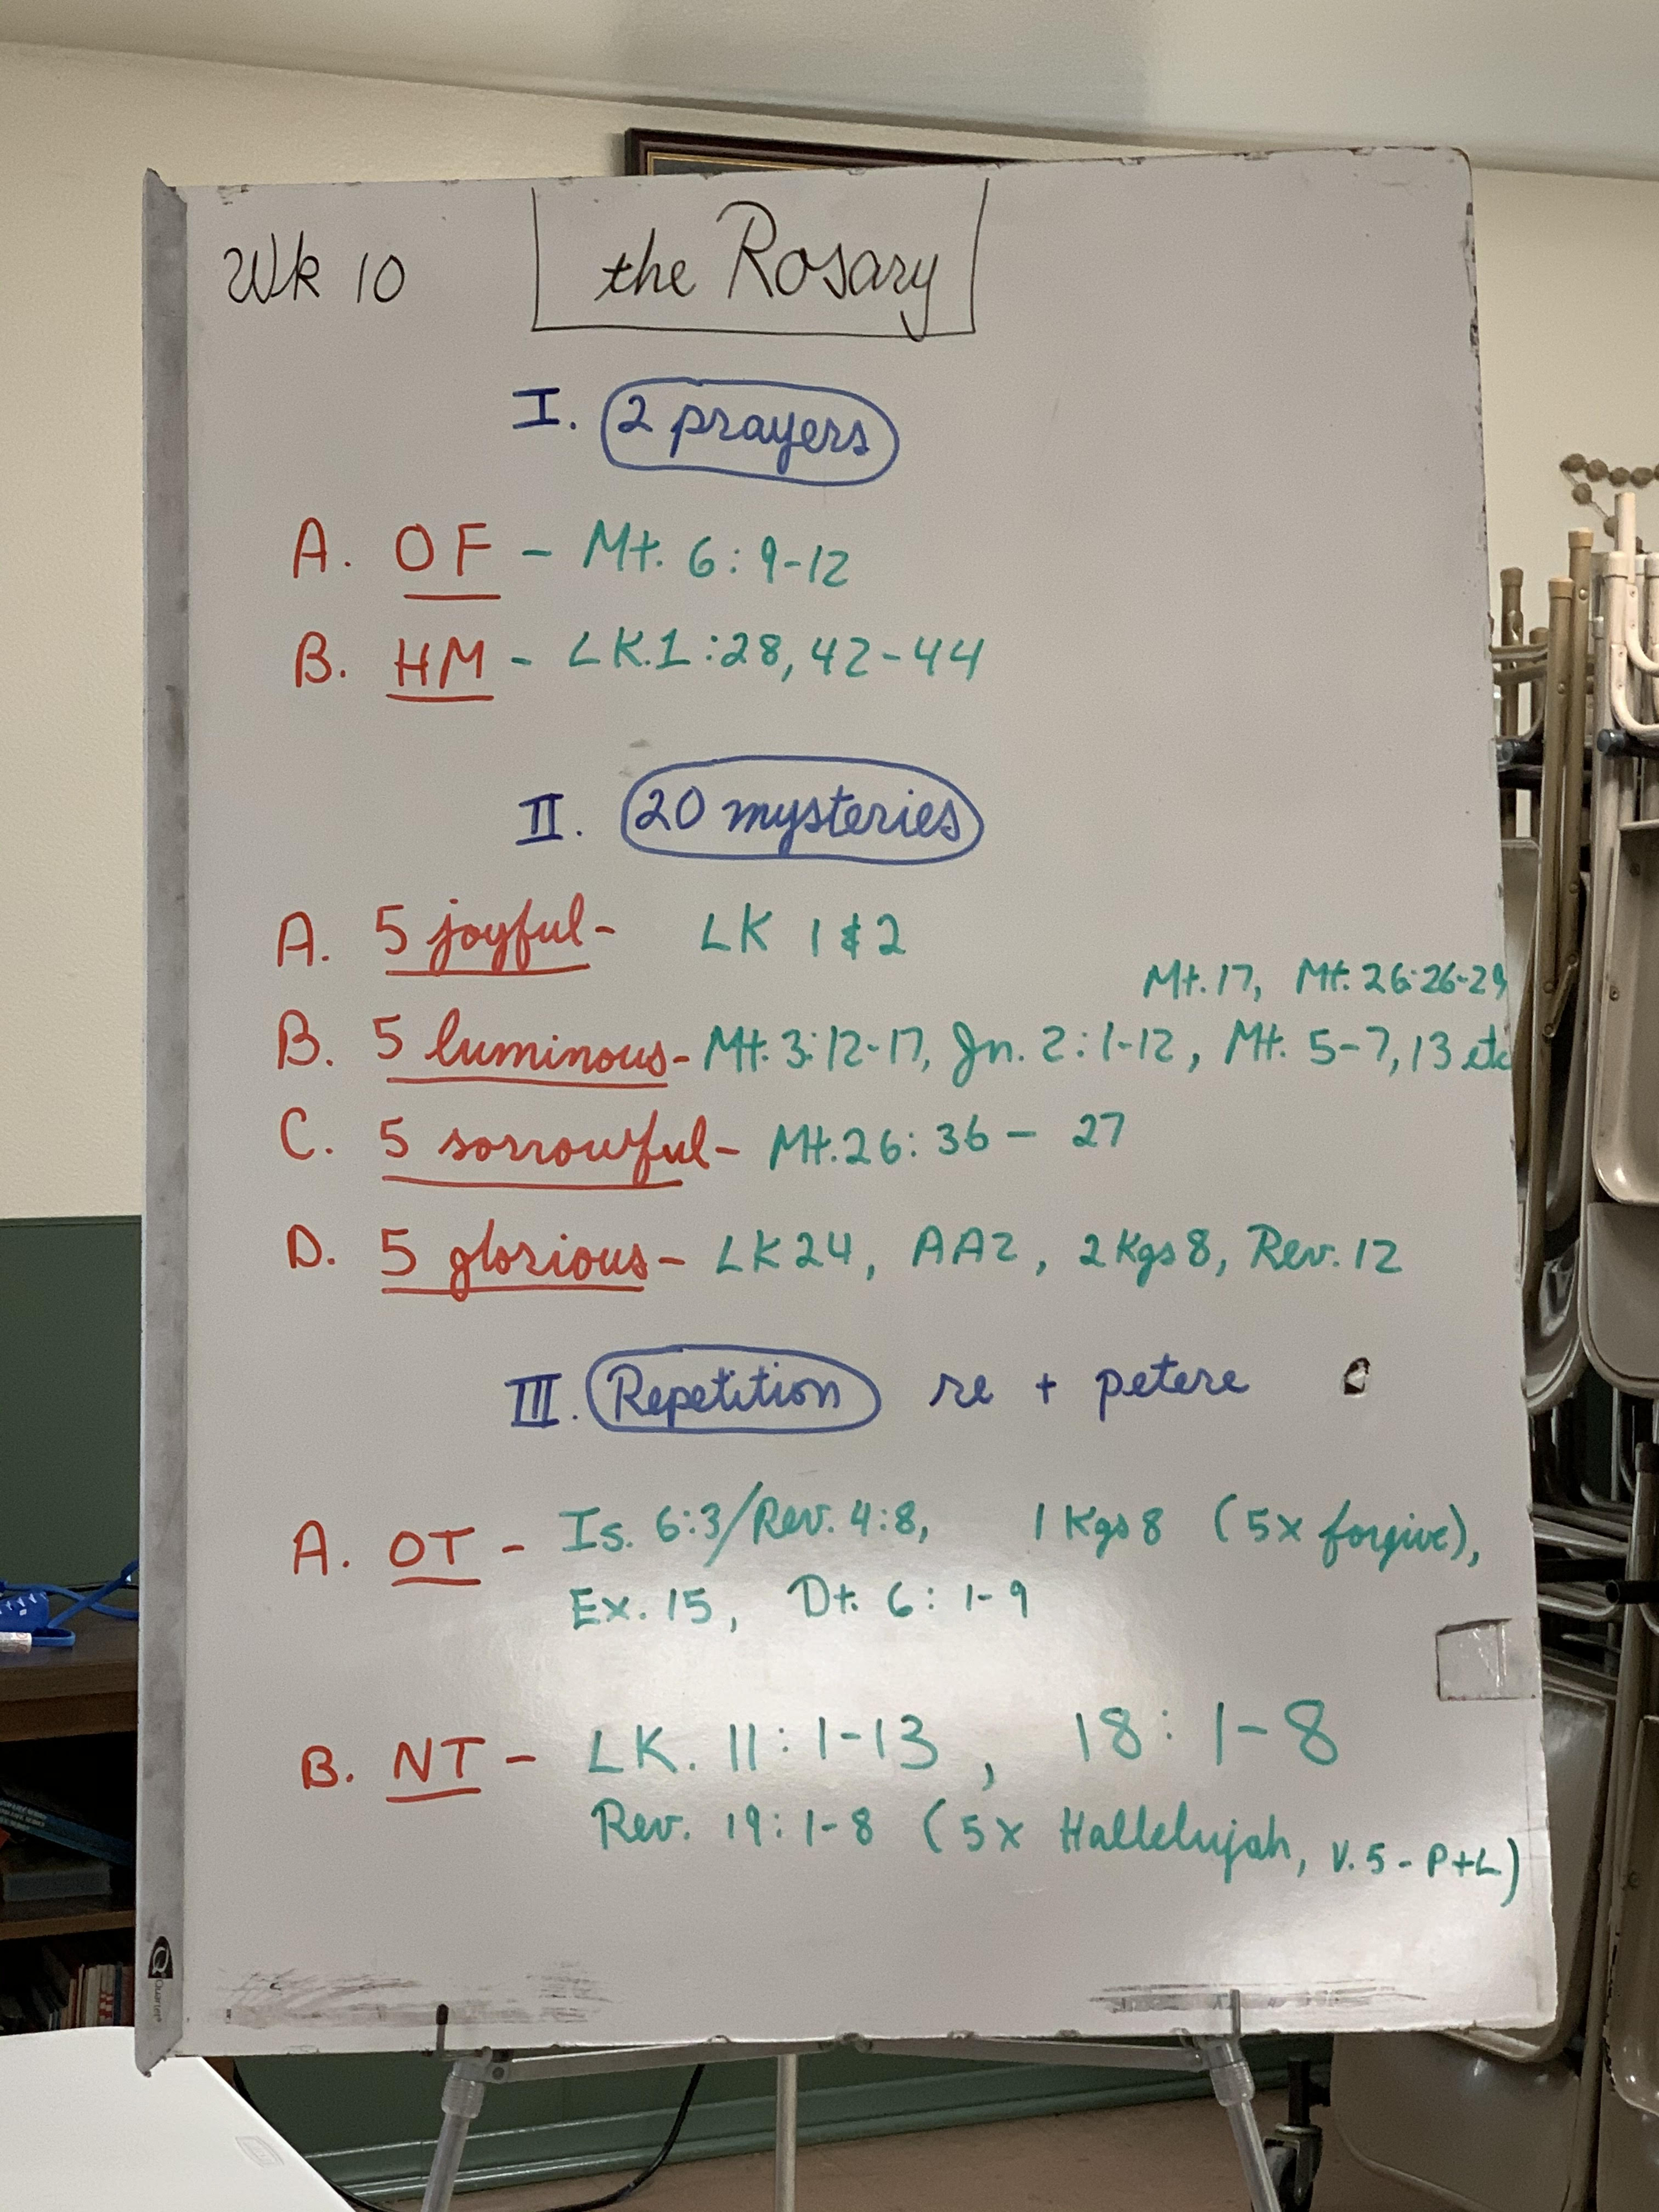 Wk 10 the Rosary
I. 2 prayers
A. OF - Mt. 6:9-12
B. HM - LK.1:28, 42-44
II. 20 mysteries
A. 5 joyful- LK 1 & 2
Mt.17, Mt. 26:26-29
B. 5 luminous- Mt. 3:12-17, Jn. 2:1-12, Mt. 5-7, 13 etc
C. 5 sorrowful- Mt.26:36 - 27
D. 5 glorious- LK 24, AA2, 2 Kgs 8, Rev. 12
III. Repetition re + petere
A. OT - Is. 6:3/Rev. 4:8, 1 Kgs 8 (5x forgive),
Ex. 15, Dt. 6:1-9
B. NT - LK. 11:1-13, 18:1-8
Rev. 19:1-8 (5x Hallelujah, v.5 - P+L)
Quartet